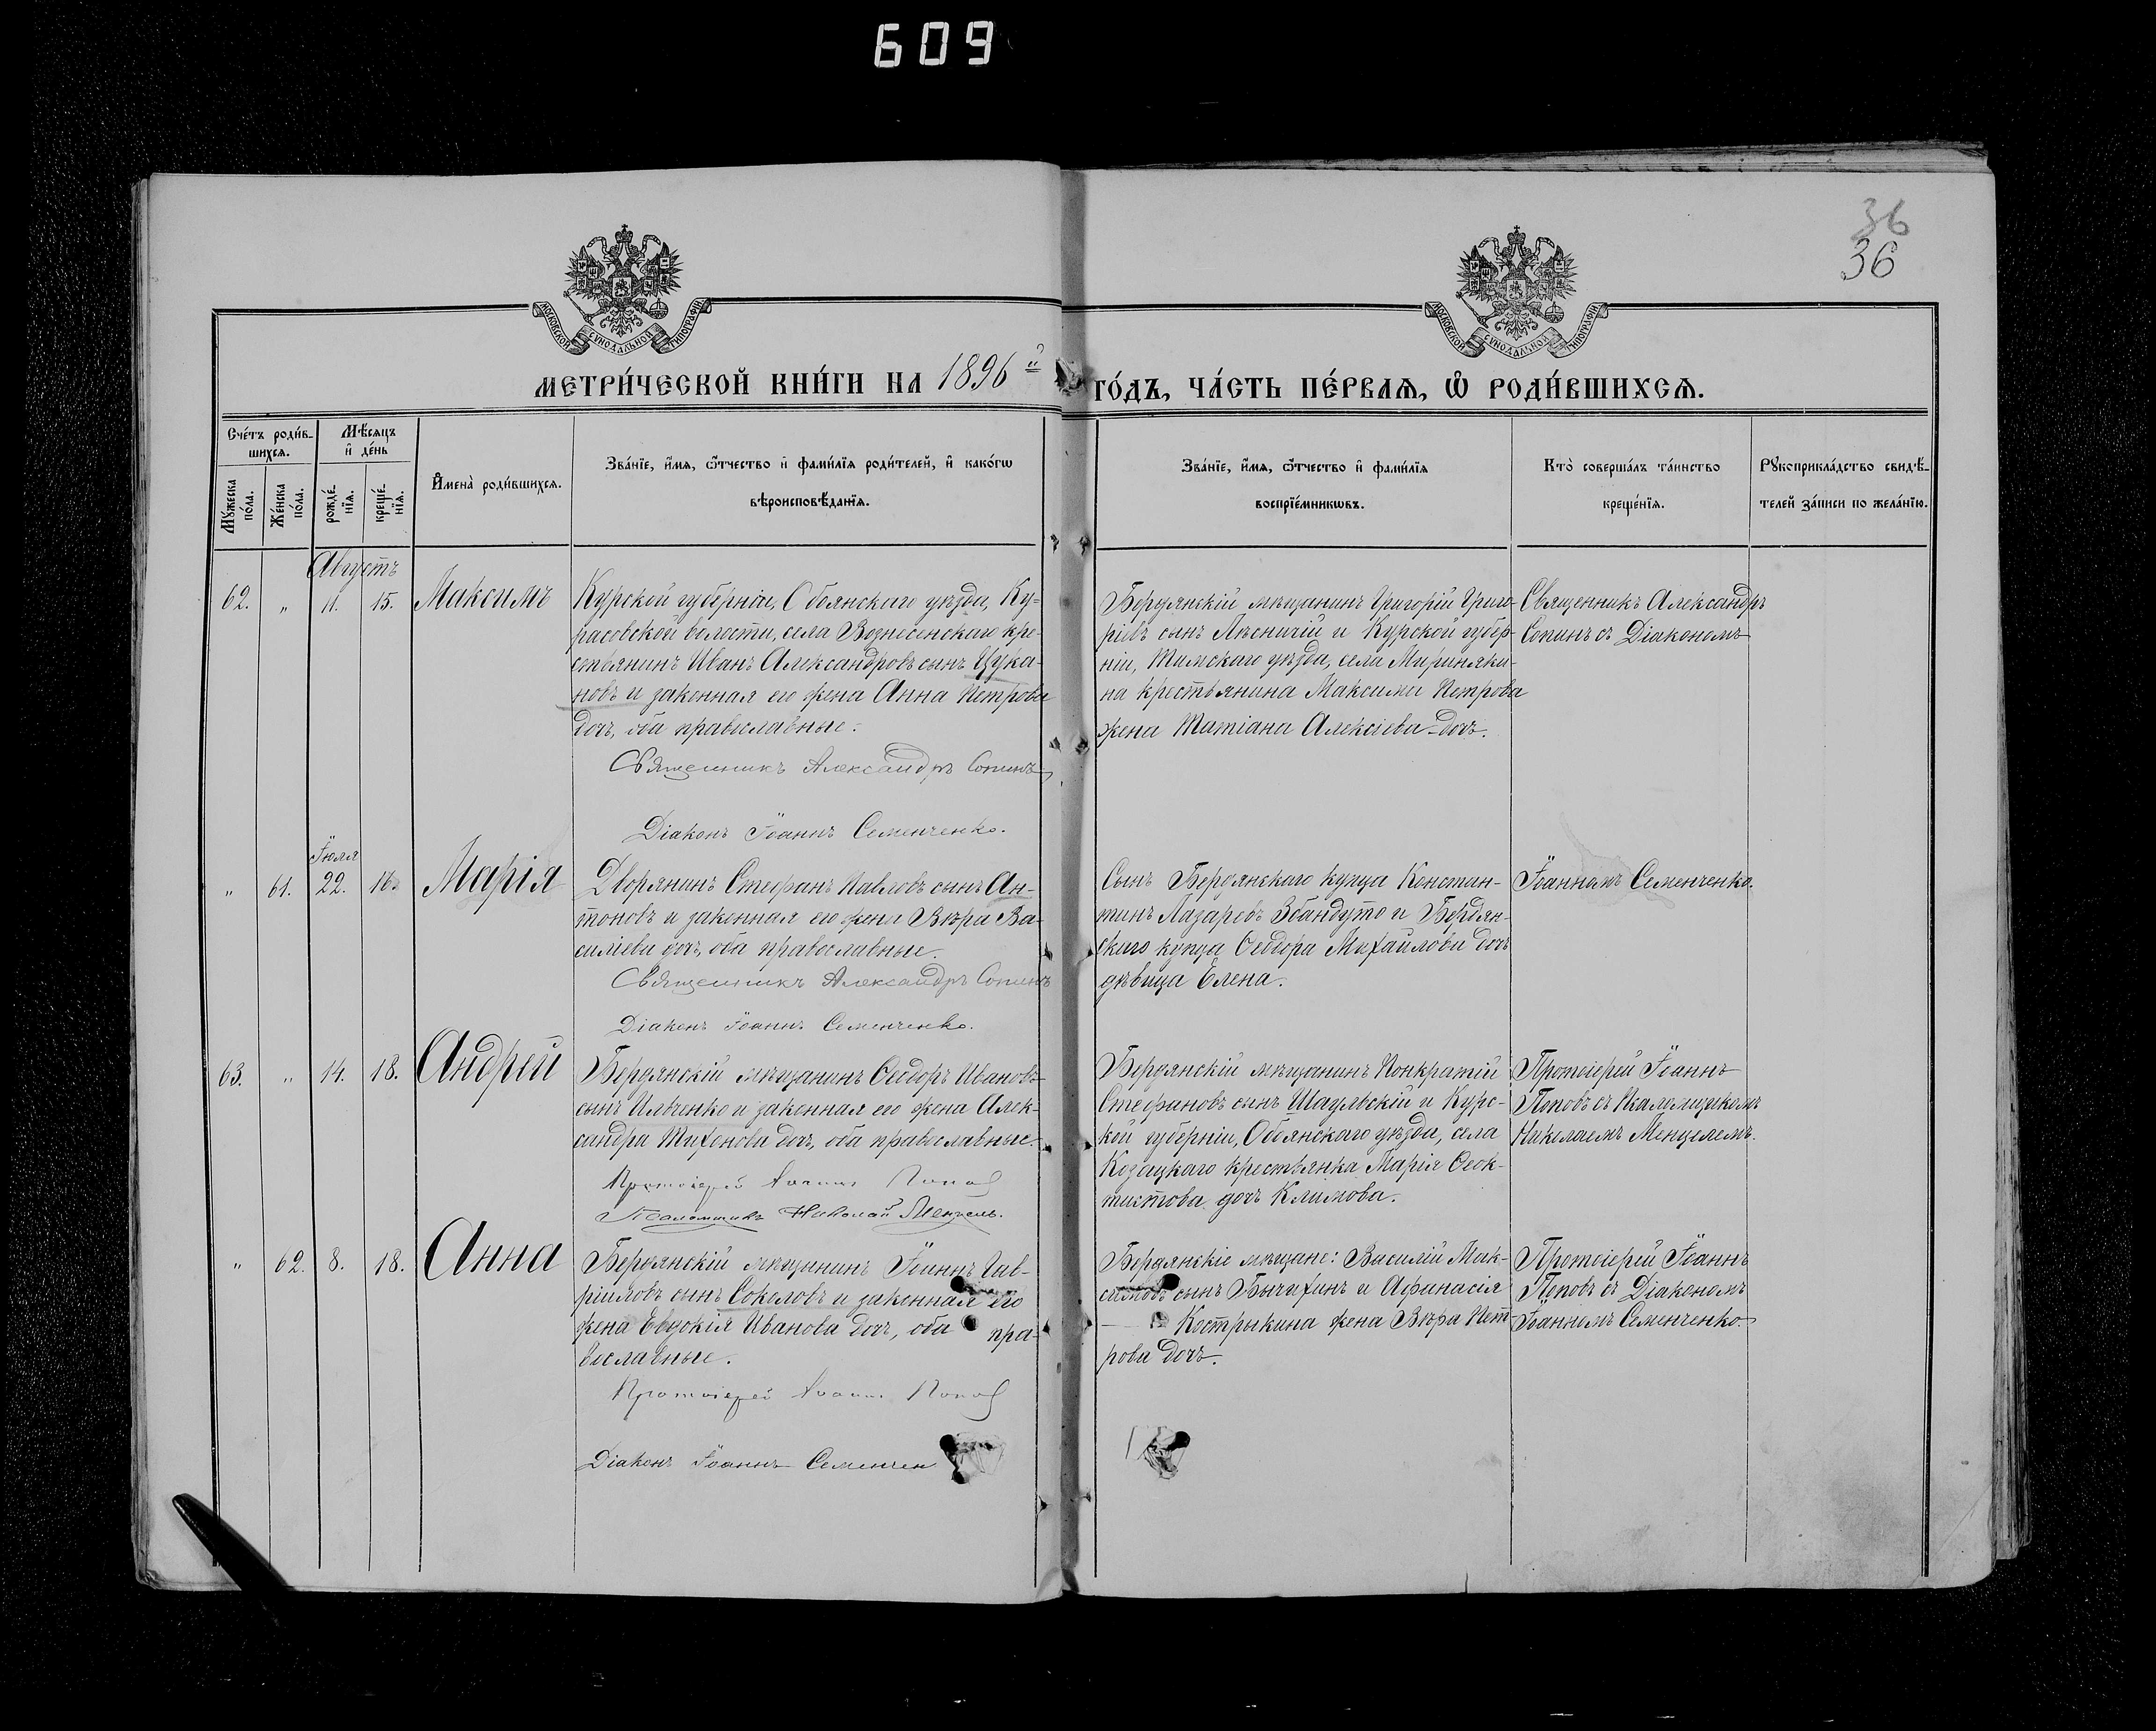 609
36
36
МОСКОВСКОЙ СѴНОДАЛЬНОЙ ТИПОГРАФІИ
МОСКОВСКОЙ СѴНОДАЛЬНОЙ ТИПОГРАФІИ
МЕТРИ́ЧЕСКОЙ КНИ́ГИ НА 1896й ГО́ДЪ, ЧА́СТЬ ПЕ́РВАѦ, Ѡ҆ РОДИ́ВШИХСѦ.
Сче́тъ роди́в-
шихсѧ.
Мѣ́сѧцъ
и҆ де́нь
Мꙋ́жеска
по́ла.
Же́нска
по́ла.
рожде́-
нїѧ.
креще́-
нїѧ.
И҆мена̀ роди́вшихсѧ.
Зва́нїе, и҆́мѧ, ѻ҆́тчество и҆ фами́лїѧ роди́телей, и҆ како́гѡ
вѣроисповѣ́данїѧ.
Зва́нїе, и҆́мѧ, ѻ҆́тчество и҆ фами́лїѧ
воспрїе́мникѡвъ.
Кто̀ соверша́лъ та́инство
креще́нїѧ.
Рꙋкоприкла́дство свидѣ́-
телей за́писи по жела́нїю.
Августъ
62. „ 11. 15. Максимъ
Курской губерніи, Обоянскаго уѣзда, Ку-
расовской волости, села Вознесенскаго кре-
стьянинъ Иванъ Александровъ сынъ Цука-
новъ и законная его жена Анна Петрова
дочь, оба православные.
Священникъ Александръ Сопинъ
Діаконъ Іоаннъ Семенченко.
Бердянскій мѣщанинъ Григорій Григо-
ріевъ сынъ Лѣсничій и Курской губер-
ніи, Тимскаго уѣзда, села
на крестьянина Максима Петрова
жена Татіана Алексіева дочь.
Священникъ Александръ
Сопинъ съ Діакономъ
Іюля
„ 61. 22. 16. Марія
Дворянинъ Стефанъ Павловъ сынъ Ан-
тоновъ и законная его жена Вѣра Ва-
силіева дочь, оба православные.
Священникъ Александръ Сопинъ
Діаконъ Іоаннъ Семенченко.
Сынъ Бердянскаго купца Констан-
тинъ Лазаревъ и Бердян-
скаго купца Ѳеодора Михайлова дочь
дѣвица Елена.
Іоанномъ Семенченко.
63. „ 14. 18. Андрей
Бердянскій мѣщанинъ Ѳеодоръ Ивановъ
сынъ Ильченко и законная его жена Алек-
сандра Тихонова дочь, оба православные.
Протоіерей Іоаннъ Поповъ
Псаломщикъ Николай Менцель.
Бердянскій мѣщанинъ Понкратій
Стефановъ сынъ Шаульскій и Курс-
кой губерніи, Обоянскаго уѣзда, села
Козацкаго крестьянка Марія Ѳеок-
тистова дочь Климова.
Протоіерей Іоаннъ
Поповъ съ Псаломщикомъ
Николаемъ Менцелемъ.
„ 62. 8. 18. Анна
Бердянскій мѣщанинъ Іоаннъ Гав-
ріиловъ сынъ Соколовъ и законная его
жена Евдокія Иванова дочь, оба пра-
вославные.
Протоіерей Іоаннъ Поповъ
Діаконъ Іоаннъ Семенчен
Бердянскіе мѣщане: Василій Мак-
симовъ сынъ Бычихинъ и Афанасія
Кострыкина жена Вѣра Пет-
рова дочь.
Протоіерей Іоаннъ
Поповъ съ Діакономъ
Іоанномъ Семенченко.